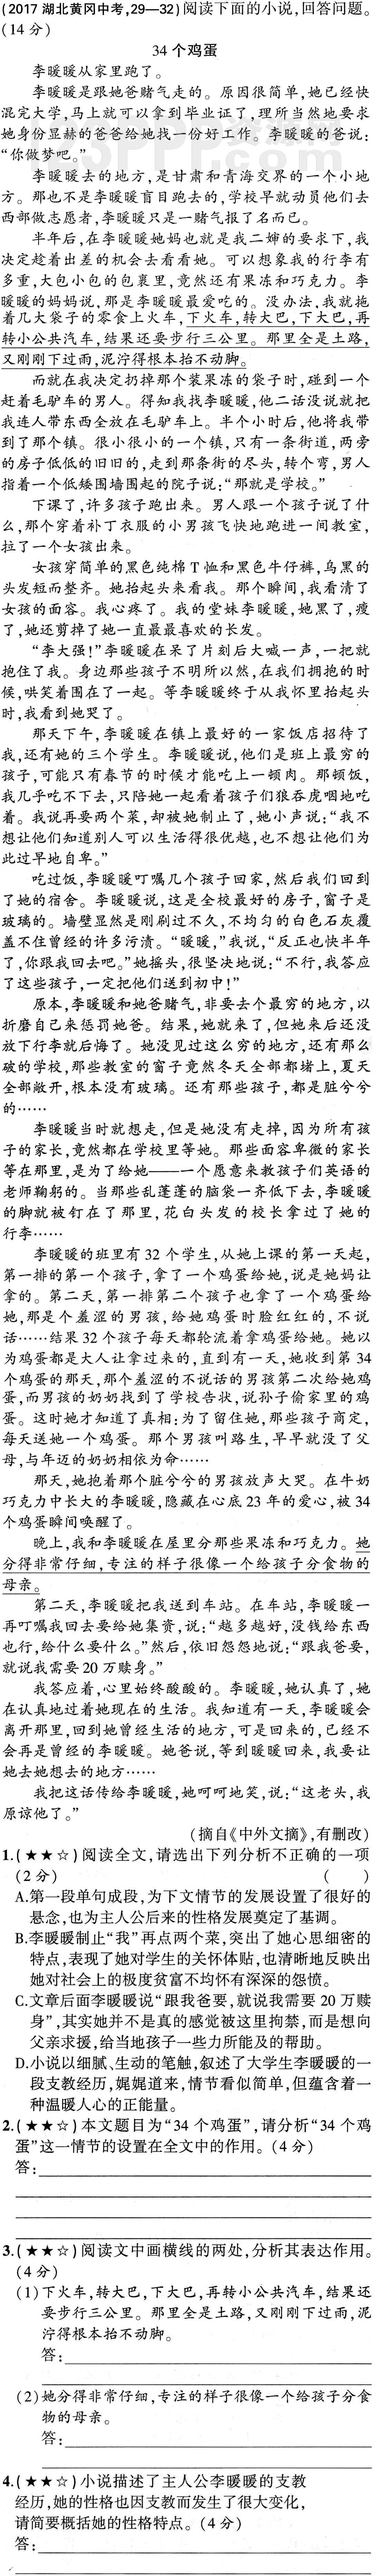 (2017 湖北黄冈中考,29—32)阅读下面的小说,回答问题。
(14 分)
34 个鸡蛋
李暖暖从家里跑了。
李暖暖是跟她爸赌气走的。原因很简单,她已经快
混完大学,马上就可以拿到毕业证了,理所当然地要求
她身份显赫的爸爸给她找一份好工作。李暖暖的爸说:
“你做梦吧。”
李暖暖去的地方,是甘肃和青海交界的一个小地
方。那也不是李暖暖盲目跑去的,学校早就动员他们去
西部做志愿者,李暖暖只是一赌气报了名而已。
半年后,在李暖暖她妈也就是我二婶的要求下,我
决定趁着出差的机会去看看她。可以想象我的行李有
多重,大包小包的包裹里,竟然还有果冻和巧克力。李
暖暖的妈妈说,那是李暖暖最爱吃的。没办法,我就拖
着几大袋子的零食上火车,下火车,转大巴,下大巴,再
转小公共汽车,结果还要步行三公里。那里全是土路,
又刚刚下过雨,泥泞得根本抬不动脚。
而就在我决定扔掉那个装果冻的袋子时,碰到一个
赶着毛驴车的男人。得知我找李暖暖,他二话没说就把
我连人带东西全放在毛驴车上。半个小时后,他将我带
到了那个镇。很小很小的一个镇,只有一条街道,两旁
的房子低低的旧旧的,走到那条街的尽头,转个弯,男人
指着一个低矮围墙围起的院子说:“那就是学校。”
下课了,许多孩子跑出来。男人跟一个孩子说了什
么,那个穿着补丁衣服的小男孩飞快地跑进一间教室,
拉了一个女孩出来。
女孩穿简单的黑色纯棉 T 恤和黑色牛仔裤,乌黑的
头发短而整齐。她抬起头来看我。那个瞬间,我看清了
女孩的面容。我心疼了。我的堂妹李暖暖,她黑了,瘦
了,她还剪掉了她一直最最喜欢的长发。
“李大强!”李暖暖在呆了片刻后大喊一声,一把就
抱住了我。身边那些孩子不明所以然,在我们拥抱的时
候,哄笑着围在了一起。等李暖暖终于从我怀里抬起头
时,我看到她哭了。
那天下午,李暖暖在镇上最好的一家饭店招待了
我,还有她的三个学生。李暖暖说,他们是班上最穷的
孩子,可能只有春节的时候才能吃上一顿肉。那顿饭,
我几乎吃不下去,只陪她一起看着孩子们狼吞虎咽地吃
着。我说再要两个菜,却被她制止了,她小声说:“我不
想让他们知道别人可以生活得很优越,也不想让他们为
此过早地自卑。”
吃过饭,李暖暖叮嘱几个孩子回家,然后我们回到
了她的宿舍。李暖暖说,这是全校最好的房子,窗子是
玻璃的。墙壁显然是刚刷过不久,不均匀的白色石灰覆
盖不住曾经的许多污渍。“暖暖,”我说,“反正也快半年
了,你跟我回去吧。”她摇头,很坚决地说:“不行,我答应
了这些孩子,一定把他们送到初中!”
原本,李暖暖和她爸赌气,非要去个最穷的地方,以
折磨自己来惩罚她爸。结果,她就来了,但她来后还没
放下行李就后悔了。她没见过这么穷的地方,还有那么
破的学校,那些教室的窗子竟然冬天全部都堵上,夏天
全部敞开,根本没有玻璃。还有那些孩子,都是脏兮兮
的……
李暖暖当时就想走,但是她没有走掉,因为所有孩
子的家长,竟然都在学校里等她。那些面容卑微的家长
等在那里,是为了给她——一个愿意来教孩子们英语的
老师鞠躬的。当那些乱蓬蓬的脑袋一齐低下去,李暖暖
的脚就被钉在了那里,花白头发的校长拿过了她的
行李……
李暖暖的班里有 32 个学生,从她上课的第一天起,
第一排的第一个孩子,拿了一个鸡蛋给她,说是她妈让
拿的。第二天,第一排第二个孩子也拿了一个鸡蛋给
她,那是个羞涩的男孩,给她鸡蛋时脸红红的,不说
话……结果 32 个孩子每天都轮流着拿鸡蛋给她。她以
为鸡蛋都是大人让拿过来的,直到有一天,她收到第 34
个鸡蛋的那天,那个羞涩的不说话的男孩第二次给她鸡
蛋,而男孩的奶奶找到了学校告状,说孙子偷家里的鸡
蛋。这时她才知道了真相:为了留住她,那些孩子商定,
每天送她一个鸡蛋。那个男孩叫路生,早早就没了父
母,与年迈的奶奶相依为命……
那天,她抱着那个脏兮兮的男孩放声大哭。在牛奶
巧克力中长大的李暖暖,隐藏在心底 23 年的爱心,被 34
个鸡蛋瞬间唤醒了。
晚上,我和李暖暖在屋里分那些果冻和巧克力。她
分得非常仔细,专注的样子很像一个给孩子分食物的
母亲。
第二天,李暖暖把我送到车站。在车站,李暖暖一
再叮嘱我回去要给她集资,说:“越多越好,没钱给东西
也行,给什么要什么。”然后,依旧怨怨地说:“跟我爸要,
就说我需要 20 万赎身。”
我答应着,心里始终酸酸的。李暖暖,她认真了,她
在认真地过着她现在的生活。我知道有一天,李暖暖会
离开那里,回到她曾经生活的地方,可是回来的,已经不
会再是曾经的李暖暖。她爸说,等到暖暖回来,我要让
她去她想去的地方……
我把这话传给李暖暖,她呵呵地笑,说:“这老头,我
原谅他了。”
(摘自《中外文摘》,有删改)
1.(★★☆)阅读全文,请选出下列分析不正确的一项
(2 分) ( )
A.第一段单句成段,为下文情节的发展设置了很好的
悬念,也为主人公后来的性格发展奠定了基调。
B.李暖暖制止“我”再点两个菜,突出了她心思细密的
特点,表现了她对学生的关怀体贴,也清晰地反映出
她对社会上的极度贫富不均怀有深深的怨愤。
C.文章后面李暖暖说“跟我爸要,就说我需要 20 万赎
身”,其实她并不是真的感觉被这里拘禁,而是想向
父亲求援,给当地孩子一些力所能及的帮助。
D.小说以细腻、生动的笔触,叙述了大学生李暖暖的一
段支教经历,娓娓道来,情节看似简单,但蕴含着一
种温暖人心的正能量。
2.(★★☆)本文题目为“34 个鸡蛋”,请分析“34 个鸡
蛋”这一情节的设置在全文中的作用。(4 分)
答:
3.(★★☆)阅读文中画横线的两处,分析其表达作用。
(4 分)
(1)下火车,转大巴,下大巴,再转小公共汽车,结果还
要步行三公里。那里全是土路,又刚刚下过雨,泥
泞得根本抬不动脚。
答:
(2)她分得非常仔细,专注的样子很像一个给孩子分食
物的母亲。
答:
4.(★★☆)小说描述了主人公李暖暖的支教
经历,她的性格也因支教而发生了很大变化,
请简要概括她的性格特点。(4 分)
答: